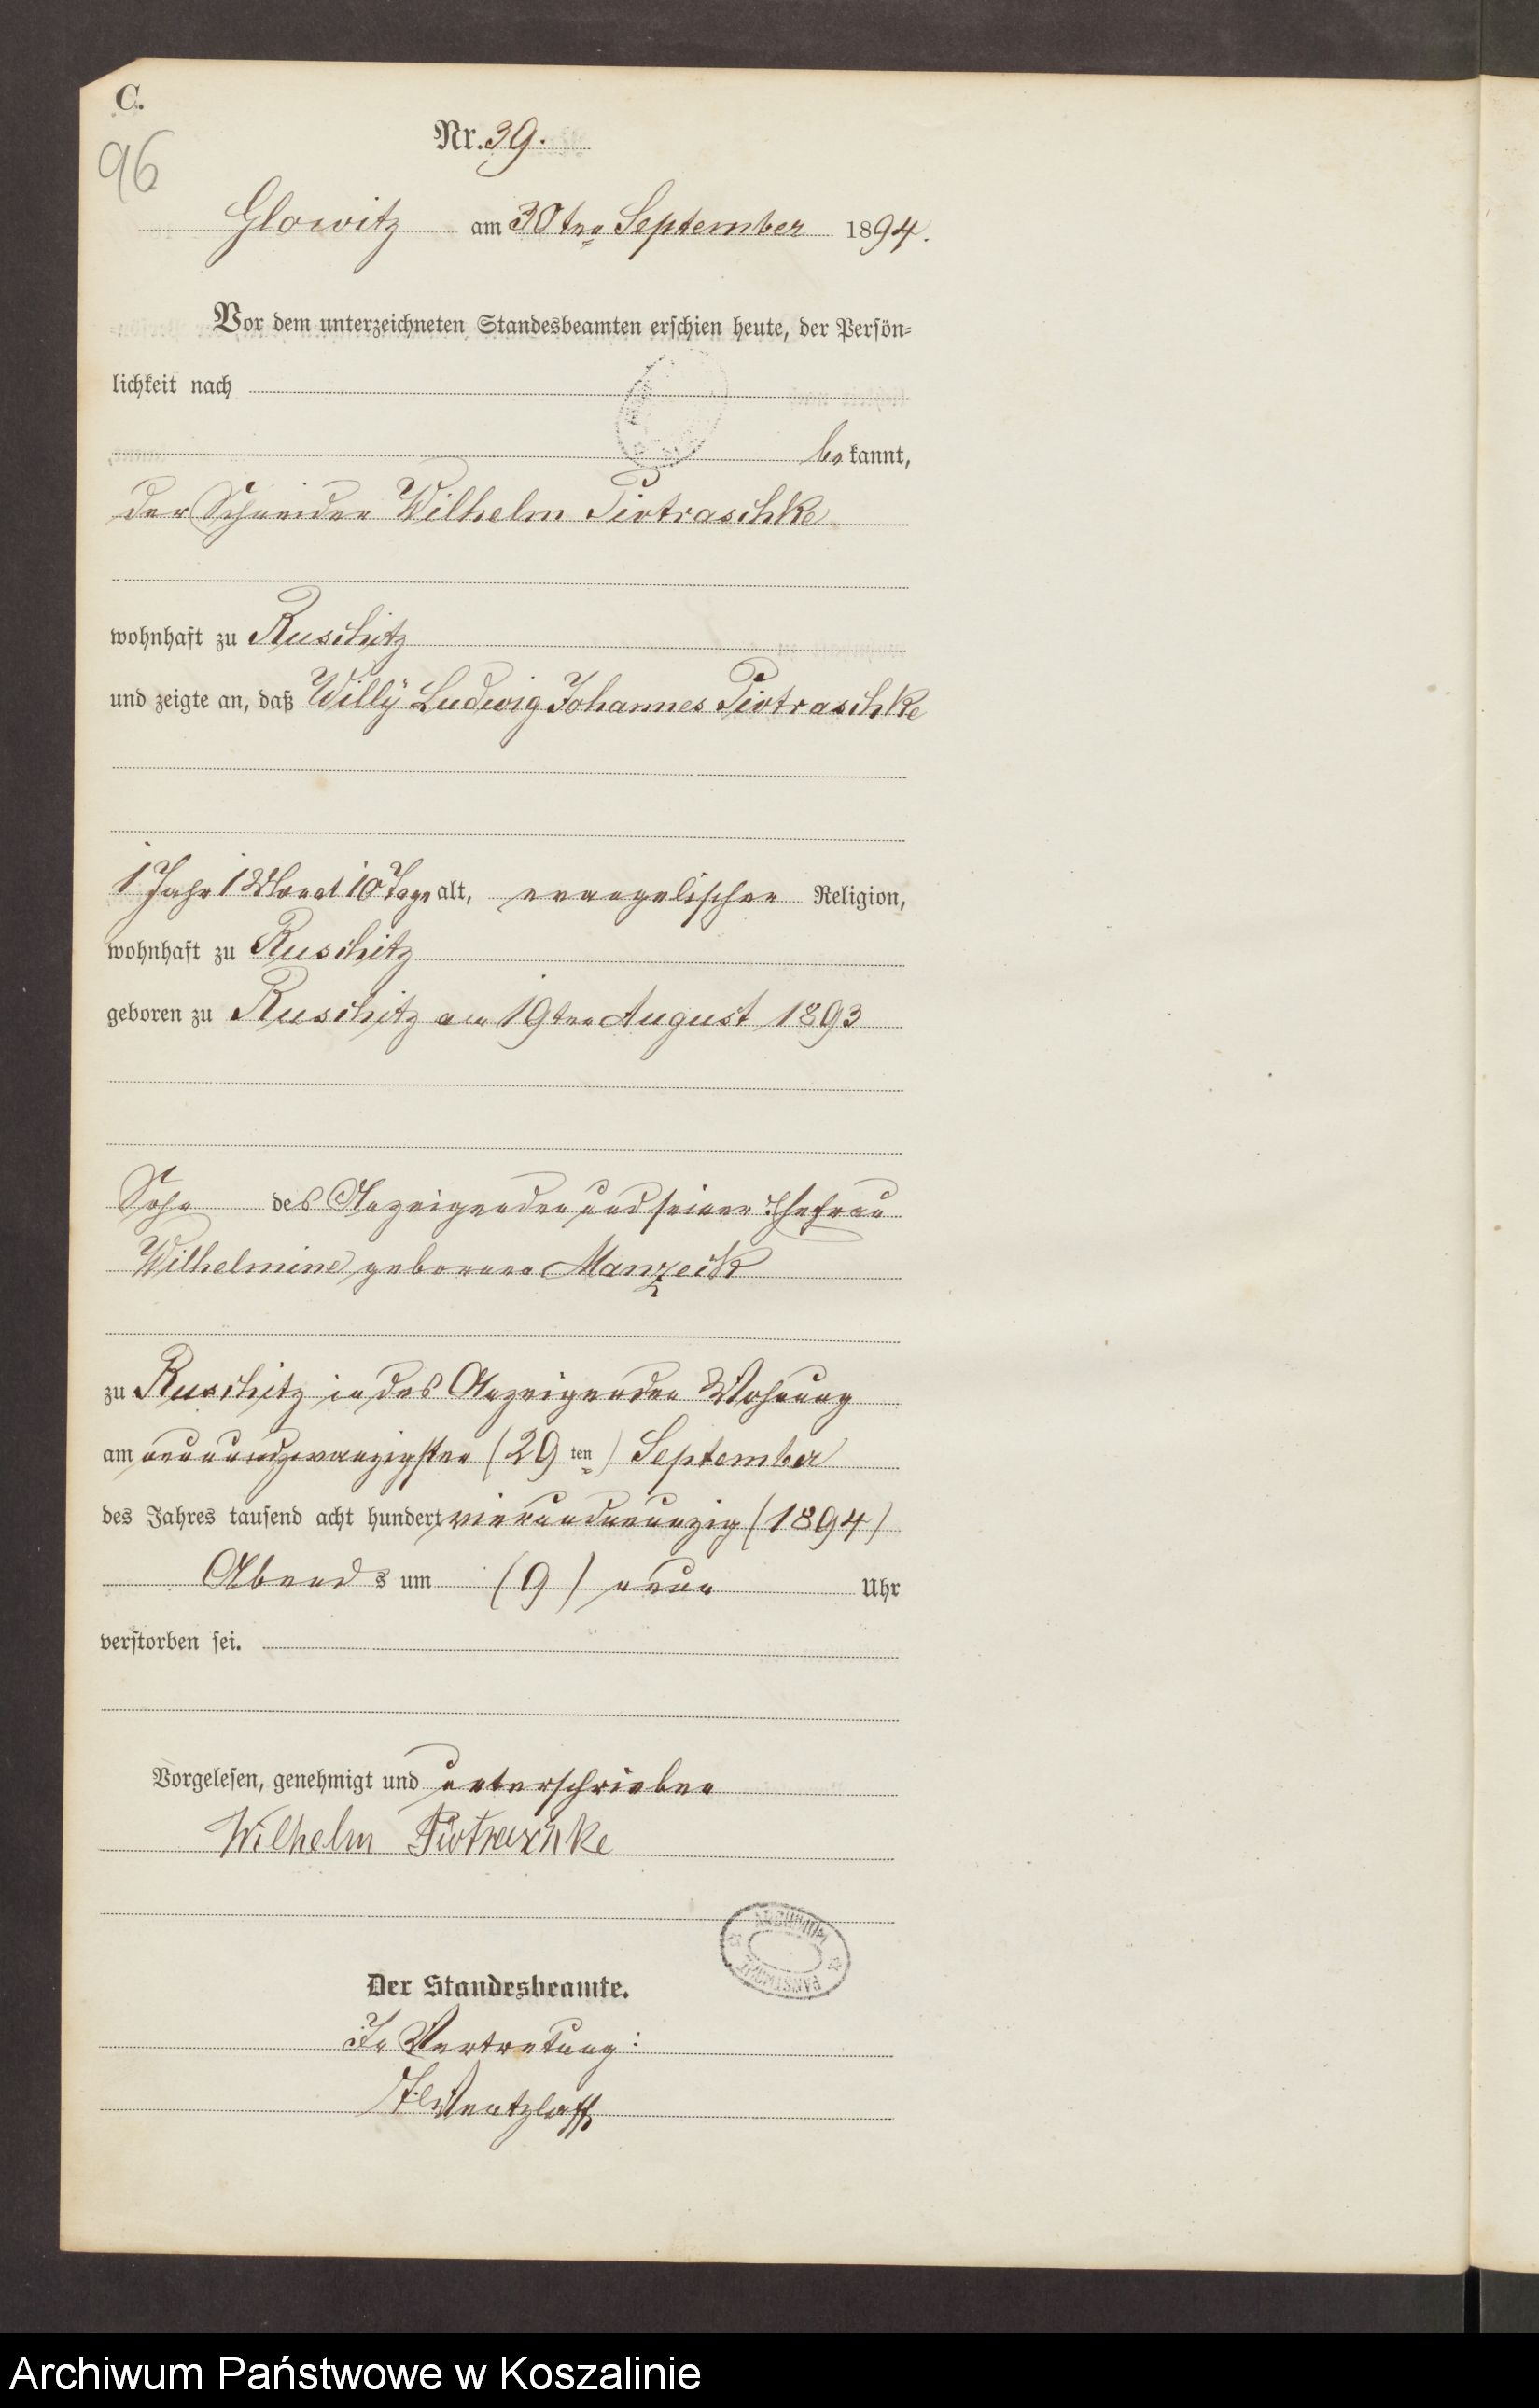 C.
96
Nr. 39.
Glowitz am 30ten September 1894.
Vor dem unterzeichneten Standesbeamten erschien heute, der Persön-
lichkeit nach
bekannt,
der Schneider Wilhelm Piotraschke
wohnhaft zu Ruschitz
und zeigte an, daß Willÿ Ludwig Johannes Piotraschke
1 Jahr 1 Monat 10 Tage alt, evangelischer Religion,
wohnhaft zu Ruschitz
geboren zu Ruschitz am 19ten August 1893
Sohn des Anzeigenden und seiner Ehefrau
Wilhelmine geborenen Manzeck
zu Ruschitz in des Anzeigenden Wohnung
am neunundzwanzigsten (29ten) September
des Jahres tausend acht hundert vierundneunzig (1894)
Abends um (9) neun Uhr
verstorben sei.
Vorgelesen, genehmigt und unterschrieben
Wilhelm Piotraschke
ARCHIWUM
PAŃSTWOWE
Der Standesbeamte.
In Vertretung:
Wentzlaff
Archiwum Państwowe w Koszalinie